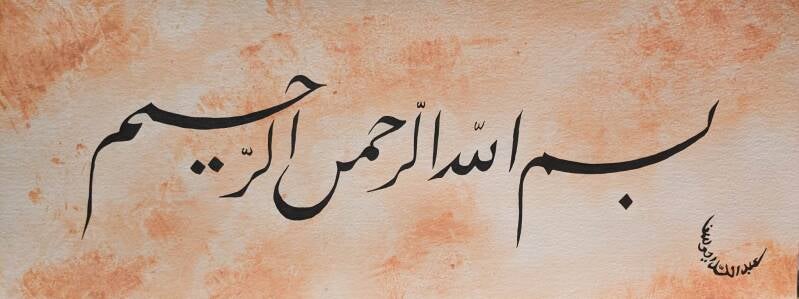 بسم الله الرّحمن الرّحیم
عبدالله